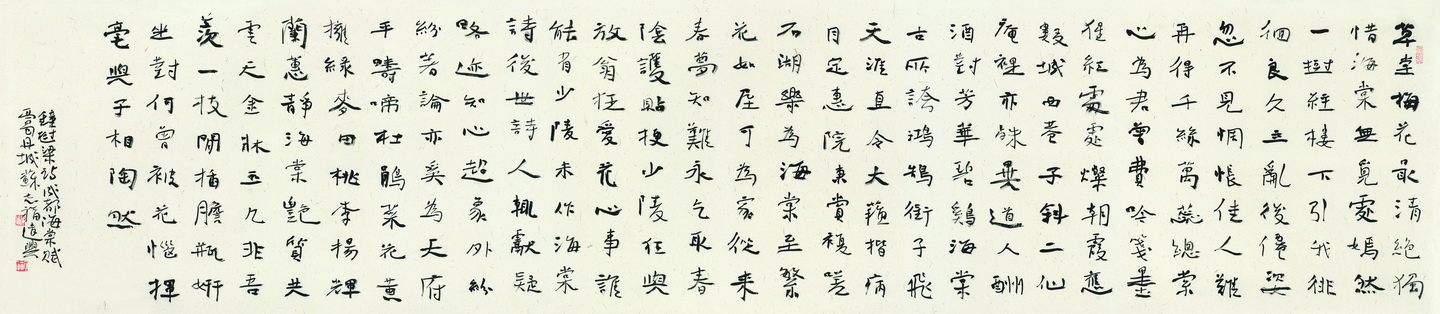 草堂梅花最清絕獨
惜海棠無覓處嫣然
一樹絓樓下引我徘
徊良久立亂後僊姿
忽不見惆悵佳人難
再得千絲萬蕊總棠
心為君曾費吟箋墨
猩紅處處燦朝霞應
數城西巷子斜二仙
庵裡亦殊異道人酬
酒對芳華碧雞海棠
古所誇鴻鵠銜子飛
天涯直令大籟揩病
目定惠院東賞複嗟
石湖樂為海棠至繁
花如屋可為家從來
春夢知難永乞取春
陰護點梗少陵任與
放翁狂愛花心事誰
能省少陵未作海棠
詩後世詩人輒獻疑
略迹知心超象外紛
紛著論亦奚為天府
平疇啼杜鵑菜花黃
擁綠麥田桃李楊輝
蘭蕙靜海棠豔質共
雲天金牀玉几非吾
羨一枝閒插膽瓶妍
坐對何曾被花惱揮
毫與子相陶然
鐘樹梁詩成都海棠賦